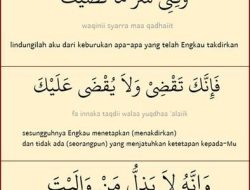 وَقِنِي شَرَّ مَا قَضَيْتَ
waqinii syarra maa qadhaiit
lindungilah aku dari keburukan apa-apa yang telah Engkau takdirkan
فَإِنَّكَ تَقْضِيْ وَلاَ يُقْضَى عَلَيْكَ
fa innaka taqdii walaa yuqdhaa 'alaiik
sesungguhnya Engkau menetapkan (menakdirkan)
dan tidak ada (seorangpun) yang menjatuhkan ketetapan kepada-Mu
وَإِنَّهُ لاَ يَذِلُّ مَنْ وَالَيْتَ